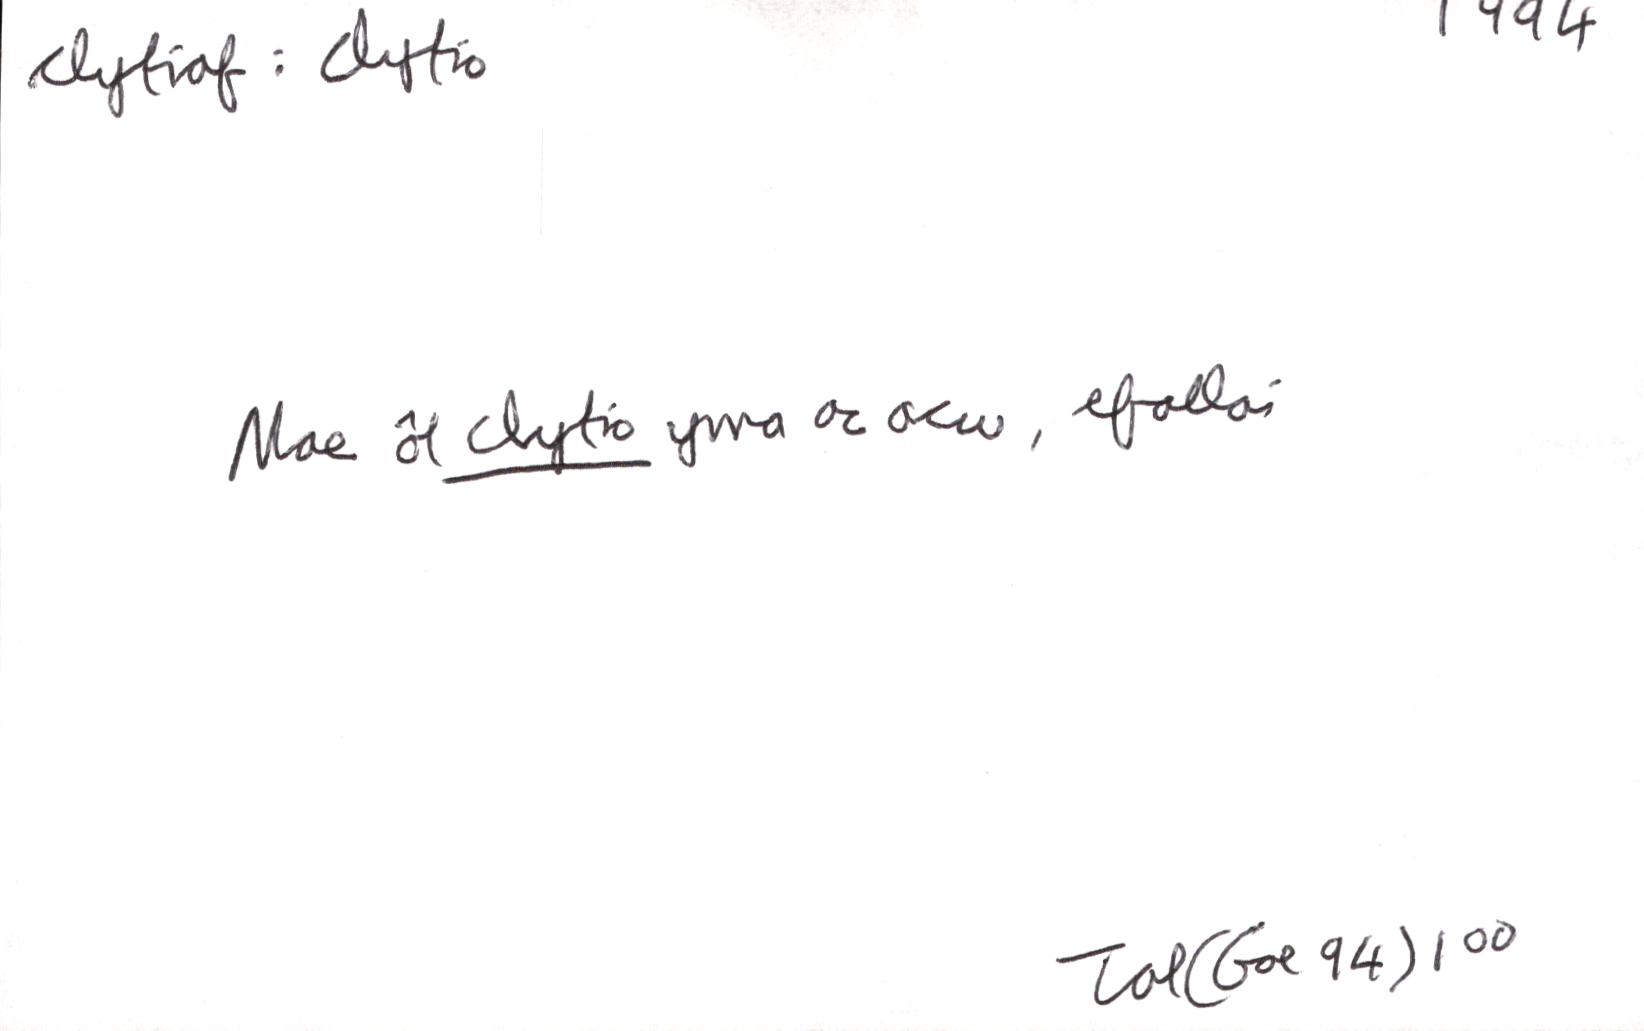 clytiaf : clytio
1994
Mae ôl clytio yma ac acw, efallai
Tal (Gae 94) 100